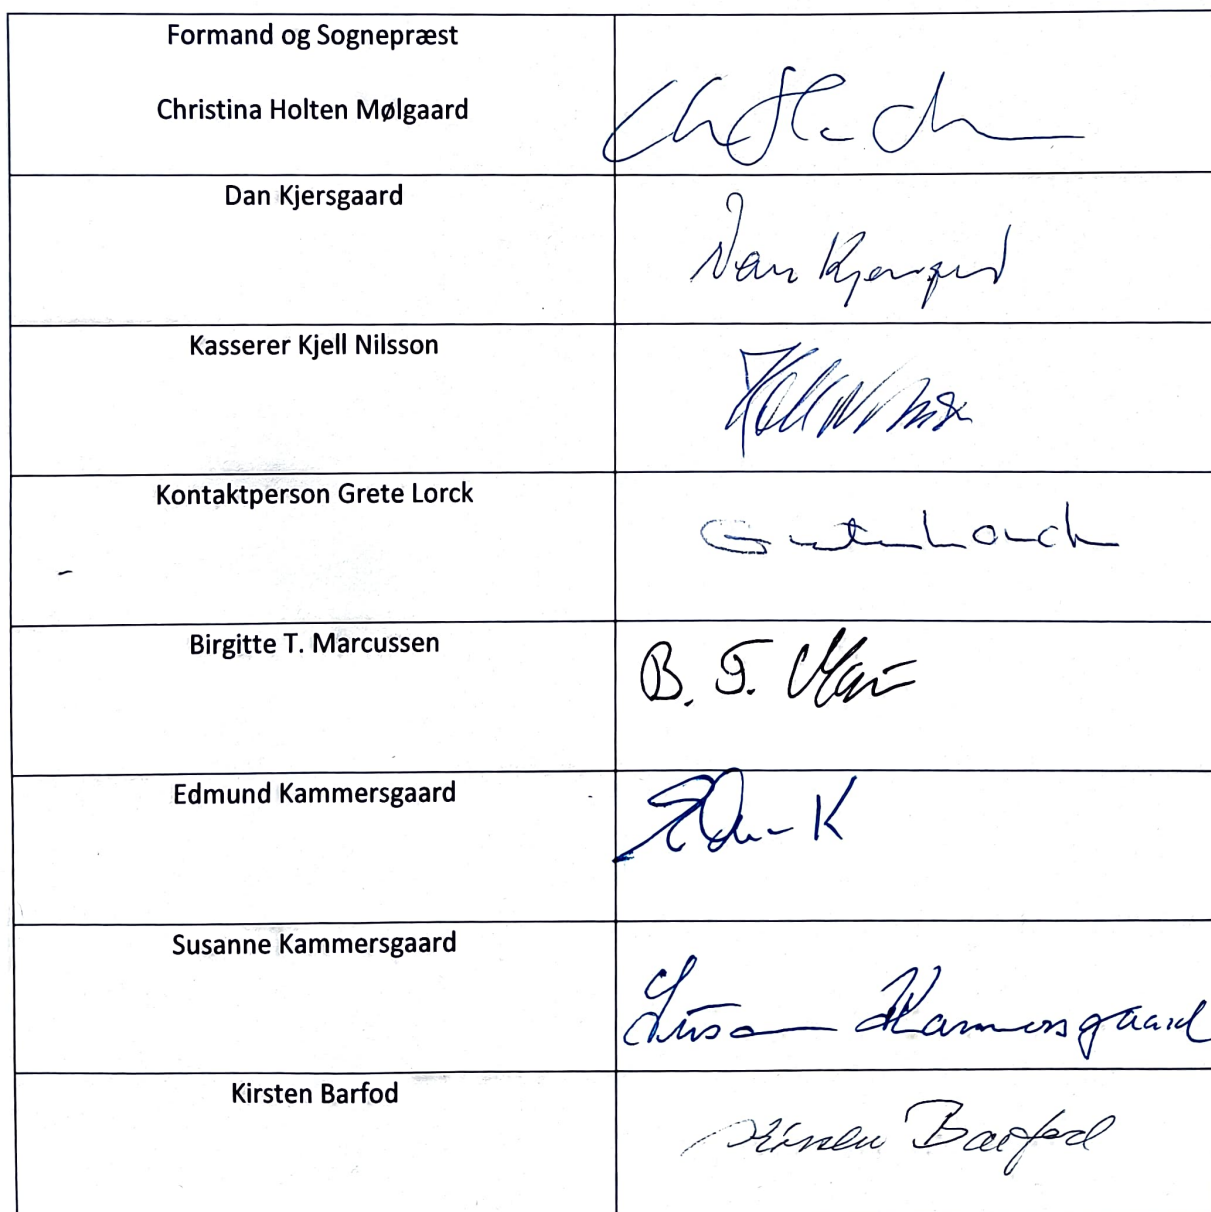 Formand og Sognepræst
Christina Holten Mølgaard
Dan Kjersgaard
Dan Kjersgaard
Kasserer Kjell Nilsson
Kontaktperson Grete Lorck
Grete Lorck
Birgitte T. Marcussen
B. T. 
Edmund Kammersgaard
K
Susanne Kammersgaard
Kammersgaard
Kirsten Barfod
Kirsten Barfod